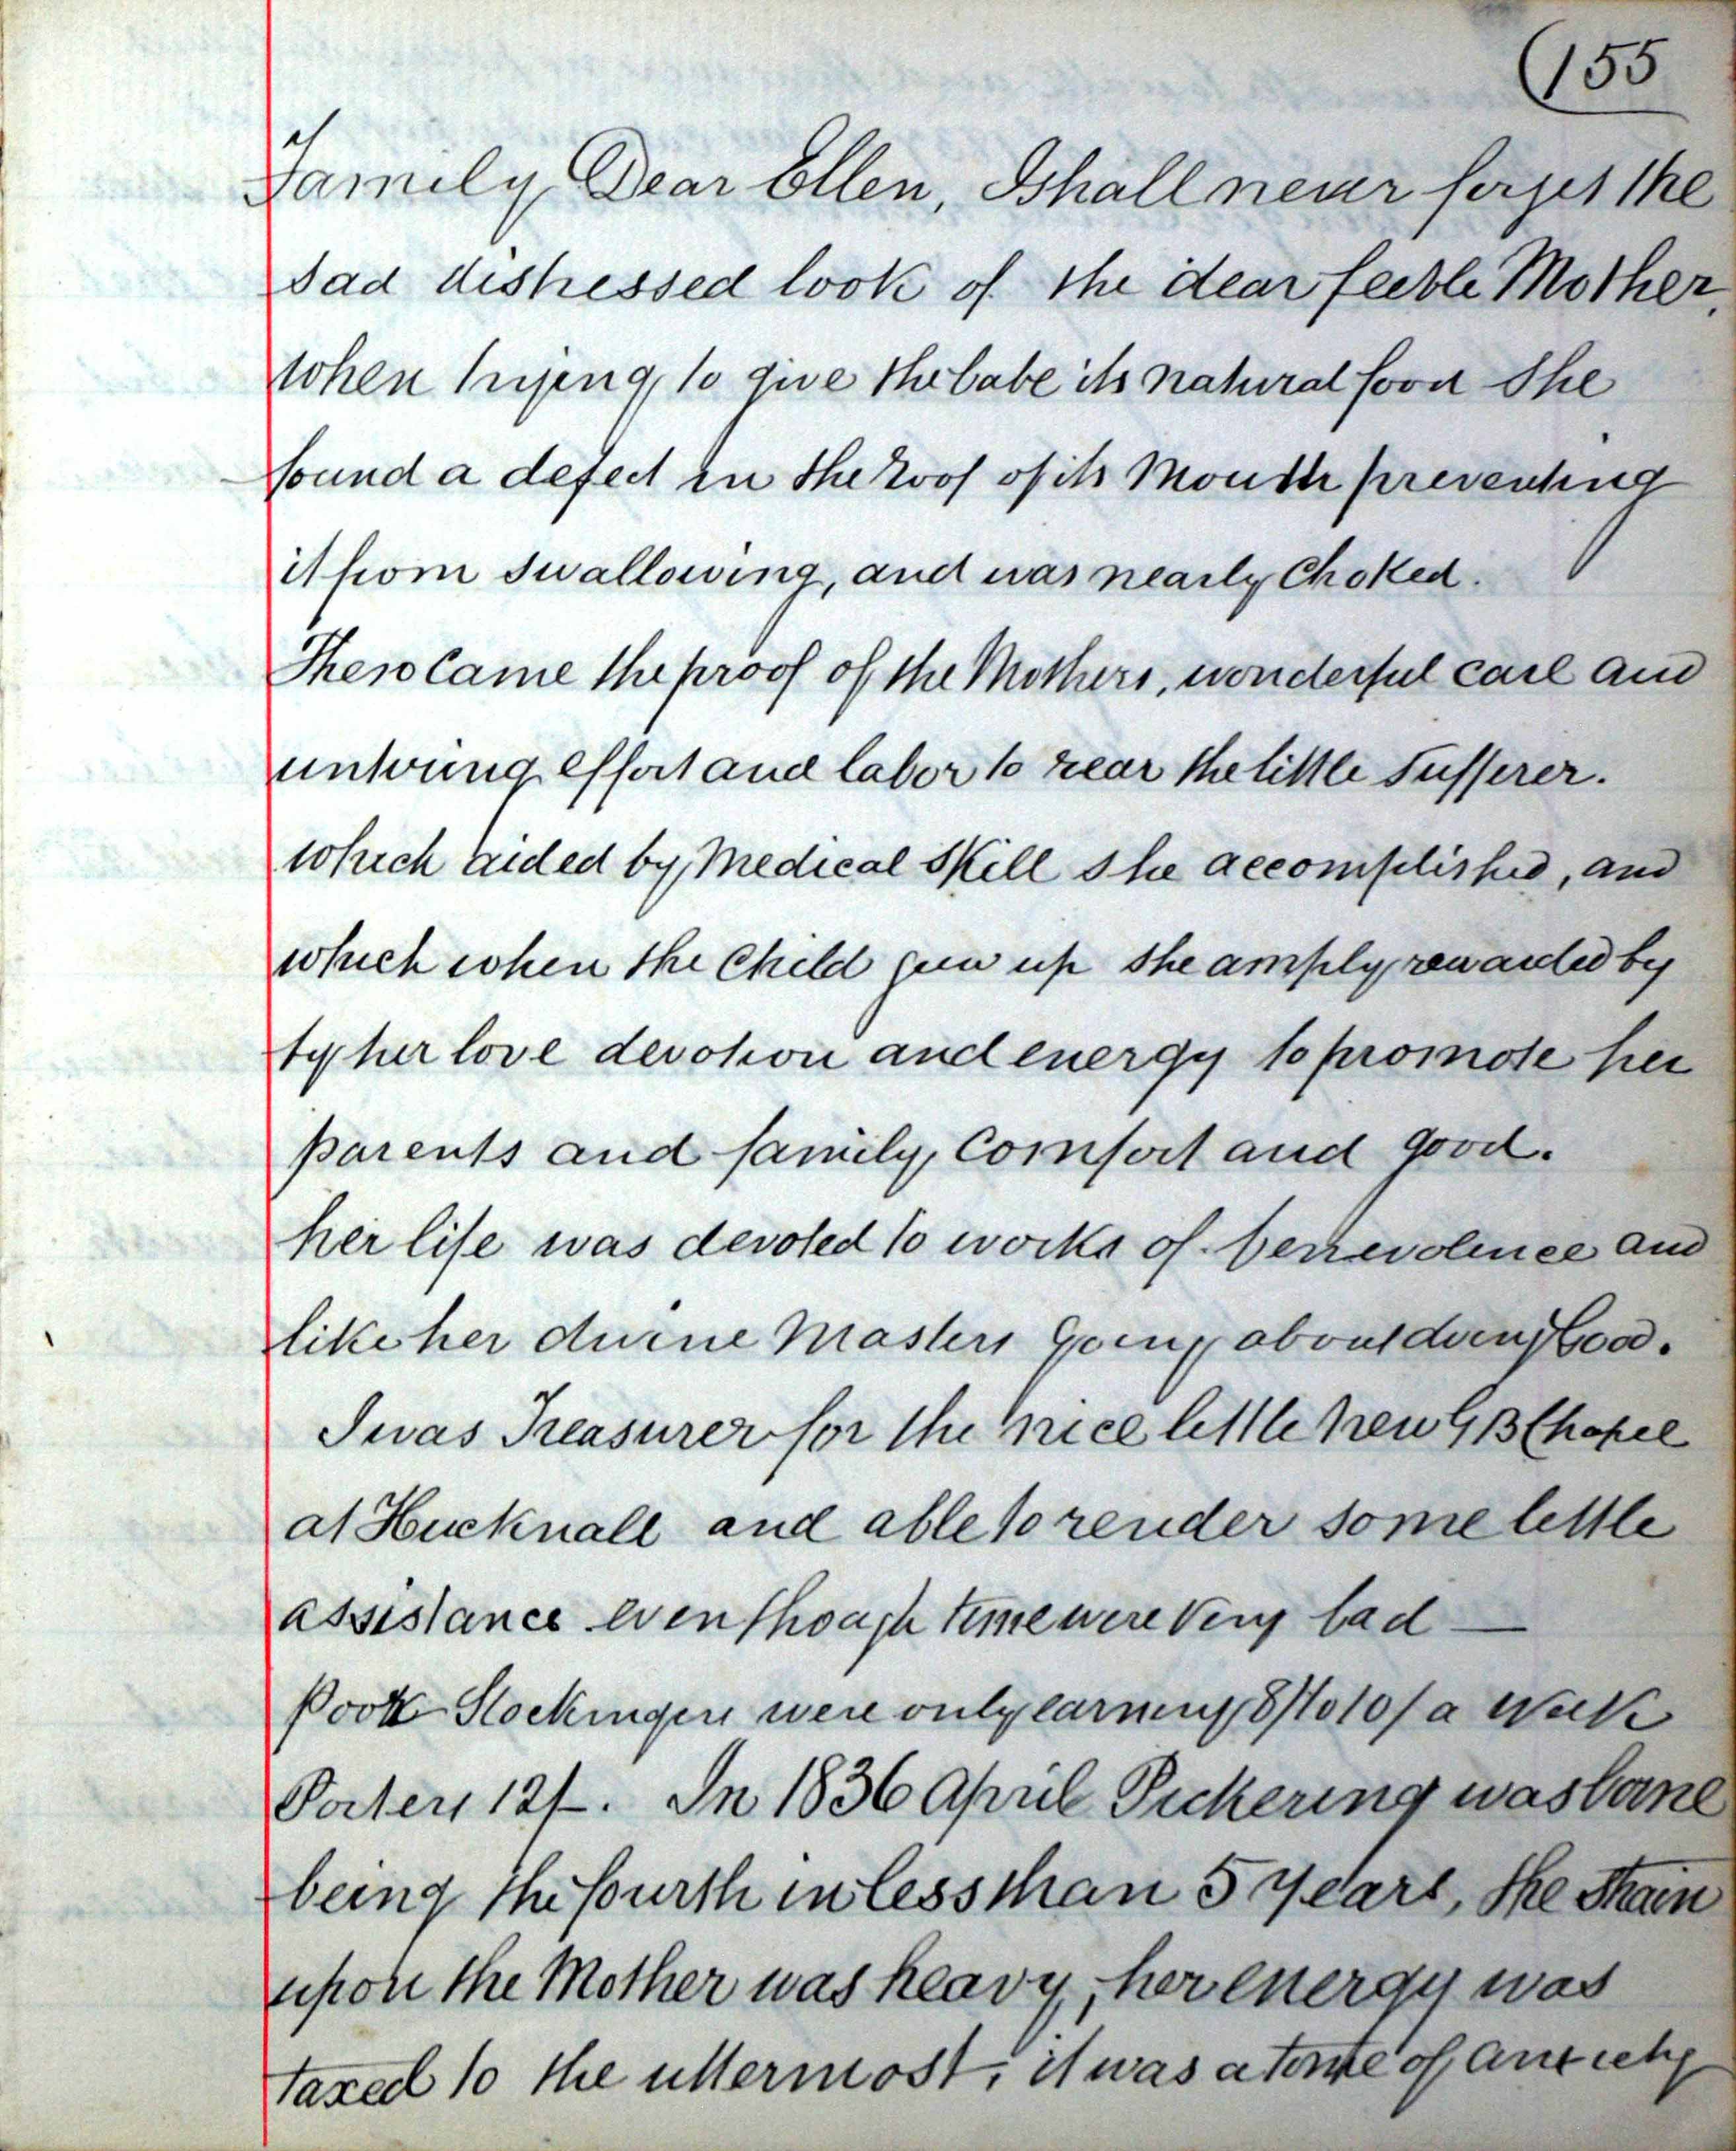 (155
Family, Dear Ellen, I shall never forget the
sad distressed look of the dear feeble Mother,
when trying to give the babe its natural food She
found a defect in the roof of its Mouth preventing
it from swallowing, and was nearly Choked.
Then Came the proof of the Mothers, wonderful care and
untiring effort and labor to rear the little sufferer.
which aided by Medical Skill she accomplished, and
which when the Child grew up she amply rewarded by
by her love devotion and energy to promote her
parents and family, Comfort and good.
her life was devoted to works of benevolence and
like her divine Masters going about doing Good.
I was Treasurer for the nice little New GB Chapel
at Hucknall and able to render some little
assistance even though time were Very bad —
Poor Stockingers were only earning 8/ to 10/ a Week
Porters 12/-. In 1836 April Pickering was borne
being the fourth in less than 5 Years, the Strain
upon the Mother was heavy, her energy was
taxed to the uttermost, it was a time of anxiety